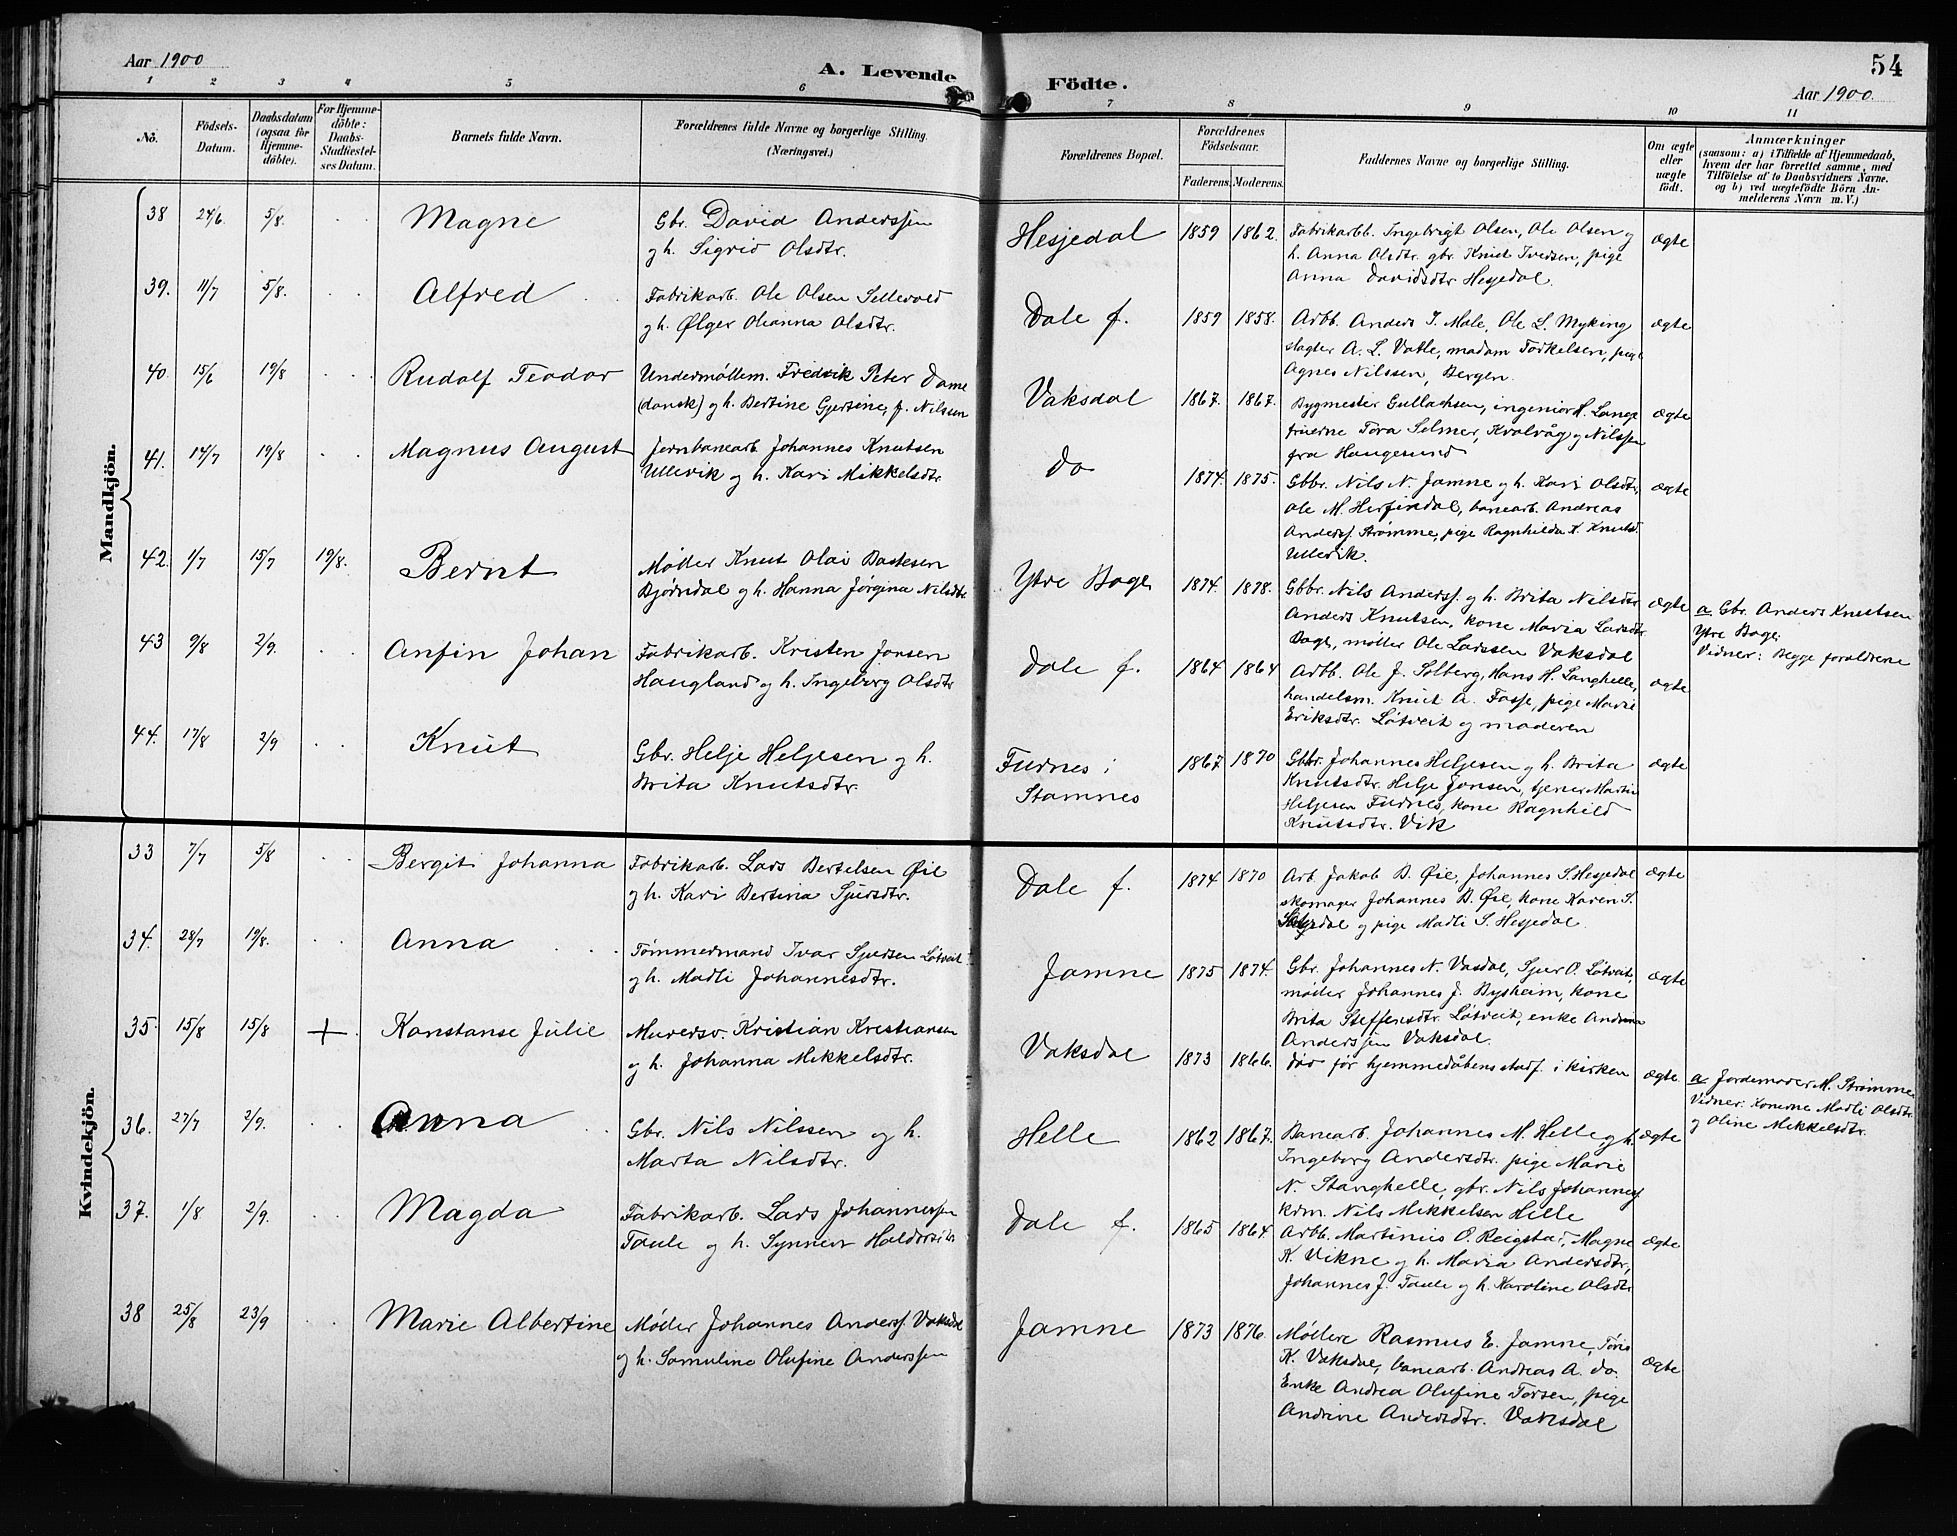 Aar 1900
A. Levende Födte.
54
Aar 1900.
1 2 3 4 5 6 7 8 9 10 11
No.
Födsels-Datum.
Daabsdatum (ogsaa for Hjemme-döbte).
For Hjemme-döbte: Daabs-Stadfæstel-ses Datum.
Barnets fulde Navn.
Forældrenes fulde Navne og borgerlige Stilling.
(Næringsvei.)
Forældrenes Bopæl.
Forældrenes Födselsaar.
Faderens. Moderens.
Faddernes Navne og borgerlige Stilling.
Om ægte eller uægte födt.
Anmærkninger
(saasom: a) i Tilfælde af Hjemmedaab,
hvem der har forrettet samme, med
Tilföielse af to Daabsvidners Navne.
og b) ved uægtefödte Börn An-
melderens Navn m. V.)
Mandkjön.
38 24/6 5/8. Magne
Gbr. David Anderssen
og h. Sigrid Olsdtr.
Hesjedal 1859 1862.
Fabrikarbb. Ingebrigt Olsen, Ole Olsen og
h. Anna Olsdtr. gbr. Knut Iversen, pige
Anna Davidsdtr. Hesjedal.
ægte
39. 11/7 5/8. Alfred
Fabrikarb. Ole Olsen Sellevold
og h. Ølger Oleanna Olsdtr.
Dale f. 1859 1858.
Arbb. Anders I. Male, Ole L. Myking
slagter A. L. Vatle, madam Torkelsen, pige
Agnes Nilssen, Bergen.
ægte
40. 15/6 19/8 Rudolf Teodor
Undermøllem. Fredrik Peter Dame
(dansk) og h. Bertine Gjertine, f. Nilsen
Vaksdal 1867. 1867.
Bygmester Gullachsen, ingeniør H. Lange
fruerne Tora Selmer, Kvalvåg og Nilssen
fra Haugesund
ægte
41. 14/7 19/8 Magnus August
Jernbanearb. Johannes Knutsen
Ullevik og h. Kari Mikkelsdtr.
do 1874. 1875.
Gbbr. Nils N. Jamne og h. Kari Olsdtr,
Ole M. Herfindal, banearb. Andreas
Anderss. Strømme, pige Ragnhilda K. Knutsd.
Ullevik.
ægte
42. 1/7 15/7 19/8. Bernt
Møller Knut Olai Baarsen
Bjørndal og h. Hanna Jørgina Nilsdtr.
Ytre Boge 1874. 1878.
Gbbr. Nils Anderss. og h. Brita Nilsdtr
Anders Knutsen, kone Maria Larsdtr.
Boge, møller Ole Larssen Vaksdal
ægte
a Gbr. Anders Knutsen
Ytre Boge.
Vidner: Begge forældrene
43 9/8 2/9. Anfin Johan
Fabrikarb. Kristen Jonsen
Haugland og h. Ingeborg Olsdtr
Dale f. 1864 1864
Arbb. Ole J. Solberg, Hans H. Langhelle,
handelsm. Knut A. Fosse, pige Marie
Eriksdtr. Løtveit og moderen
ægte
44. 17/8 2/9 Knut
Gbr. Helje Heljesen og h.
Brita Knutsdtr.
Furnes i
Stamnes
1867. 1870
Gbbr. Johannes Heljesen og h. Brita
Knutsdtr. Helje Jonsen, tjener Martin
Heljesen Furnes, kone Ragnhild
Knutsdtr. Vik
ægte
Kvindekjön.
33 7/7 5/8 Bergit Johanna
Fabrikarb. Lars Bertelsen Øie
og h. Kari Bertina Sjursdtr.
Dale f. 1874 1870
Arb. Jakob B. Øie, Johannes S. Hesjedal
skomager Johannes B. Øie, kone Karen S.
og pige Madli S. Hesjedal.
ægte
34. 28/7 19/8. Anna
Tømmermand Ivar Sjursen Løtveit
og h. Madli Johannesdtr.
Jamne 1875 1874.
Gbr. Johannes N. Vasdal, Sjur O. Løtveit,
møller Johannes J. Bysheim, kone
Brita Steffensdtr. Løtveit, enke Andrina
Anderssen Vaksdal.
ægte
35. 15/8 15/8 + Konstanse Julie
Murersv. Kristian Kristiansen
og h. Johanna Mikkelsdtr.
Vaksdal 1873 1866.
død før hjemmedåbens stadf. i kirken
ægte.
a Jordemoder M. Strømme
Vidner: Konerne Madli Olsdtr.
og Oline Mikkelsdtr.
36. 27/7 2/9. Anna
Gbr. Nils Nilssen og h.
Marta Nilsdtr.
Helle 1862 1867.
Banearb. Johannes M. Helle og h.
Ingeborg Andersdtr. pige Marie
N. Stanghelle, gbr. Nils Johanness.
kdm. Nils Mikkelsen Helle
ægte
37. 1/8 2/9. Magda
Fabrikarb. Lars Johannessen
Taule og h. Synnev
Dale f. 1865 1864.
Arbb. Martinius O. Reigstad, Magne
K. Vikne og h. Maria Andersdtr,
Johannes J. Taule og h. Karoline Olsdtr
ægte
38 25/8 23/9 Marie Albertine
Møller Johannes Anderss. Vaksdal
og h. Samuline Olufine Anderssen
Jamne 1873 1876.
Møllere Rasmus E. Jamne, Tøris
K. Vaksdal, banearb. Andreas A. do.
Enke Andrea Olufine Torsen, pige
Andrine Andersdtr. Vaksdal
ægte